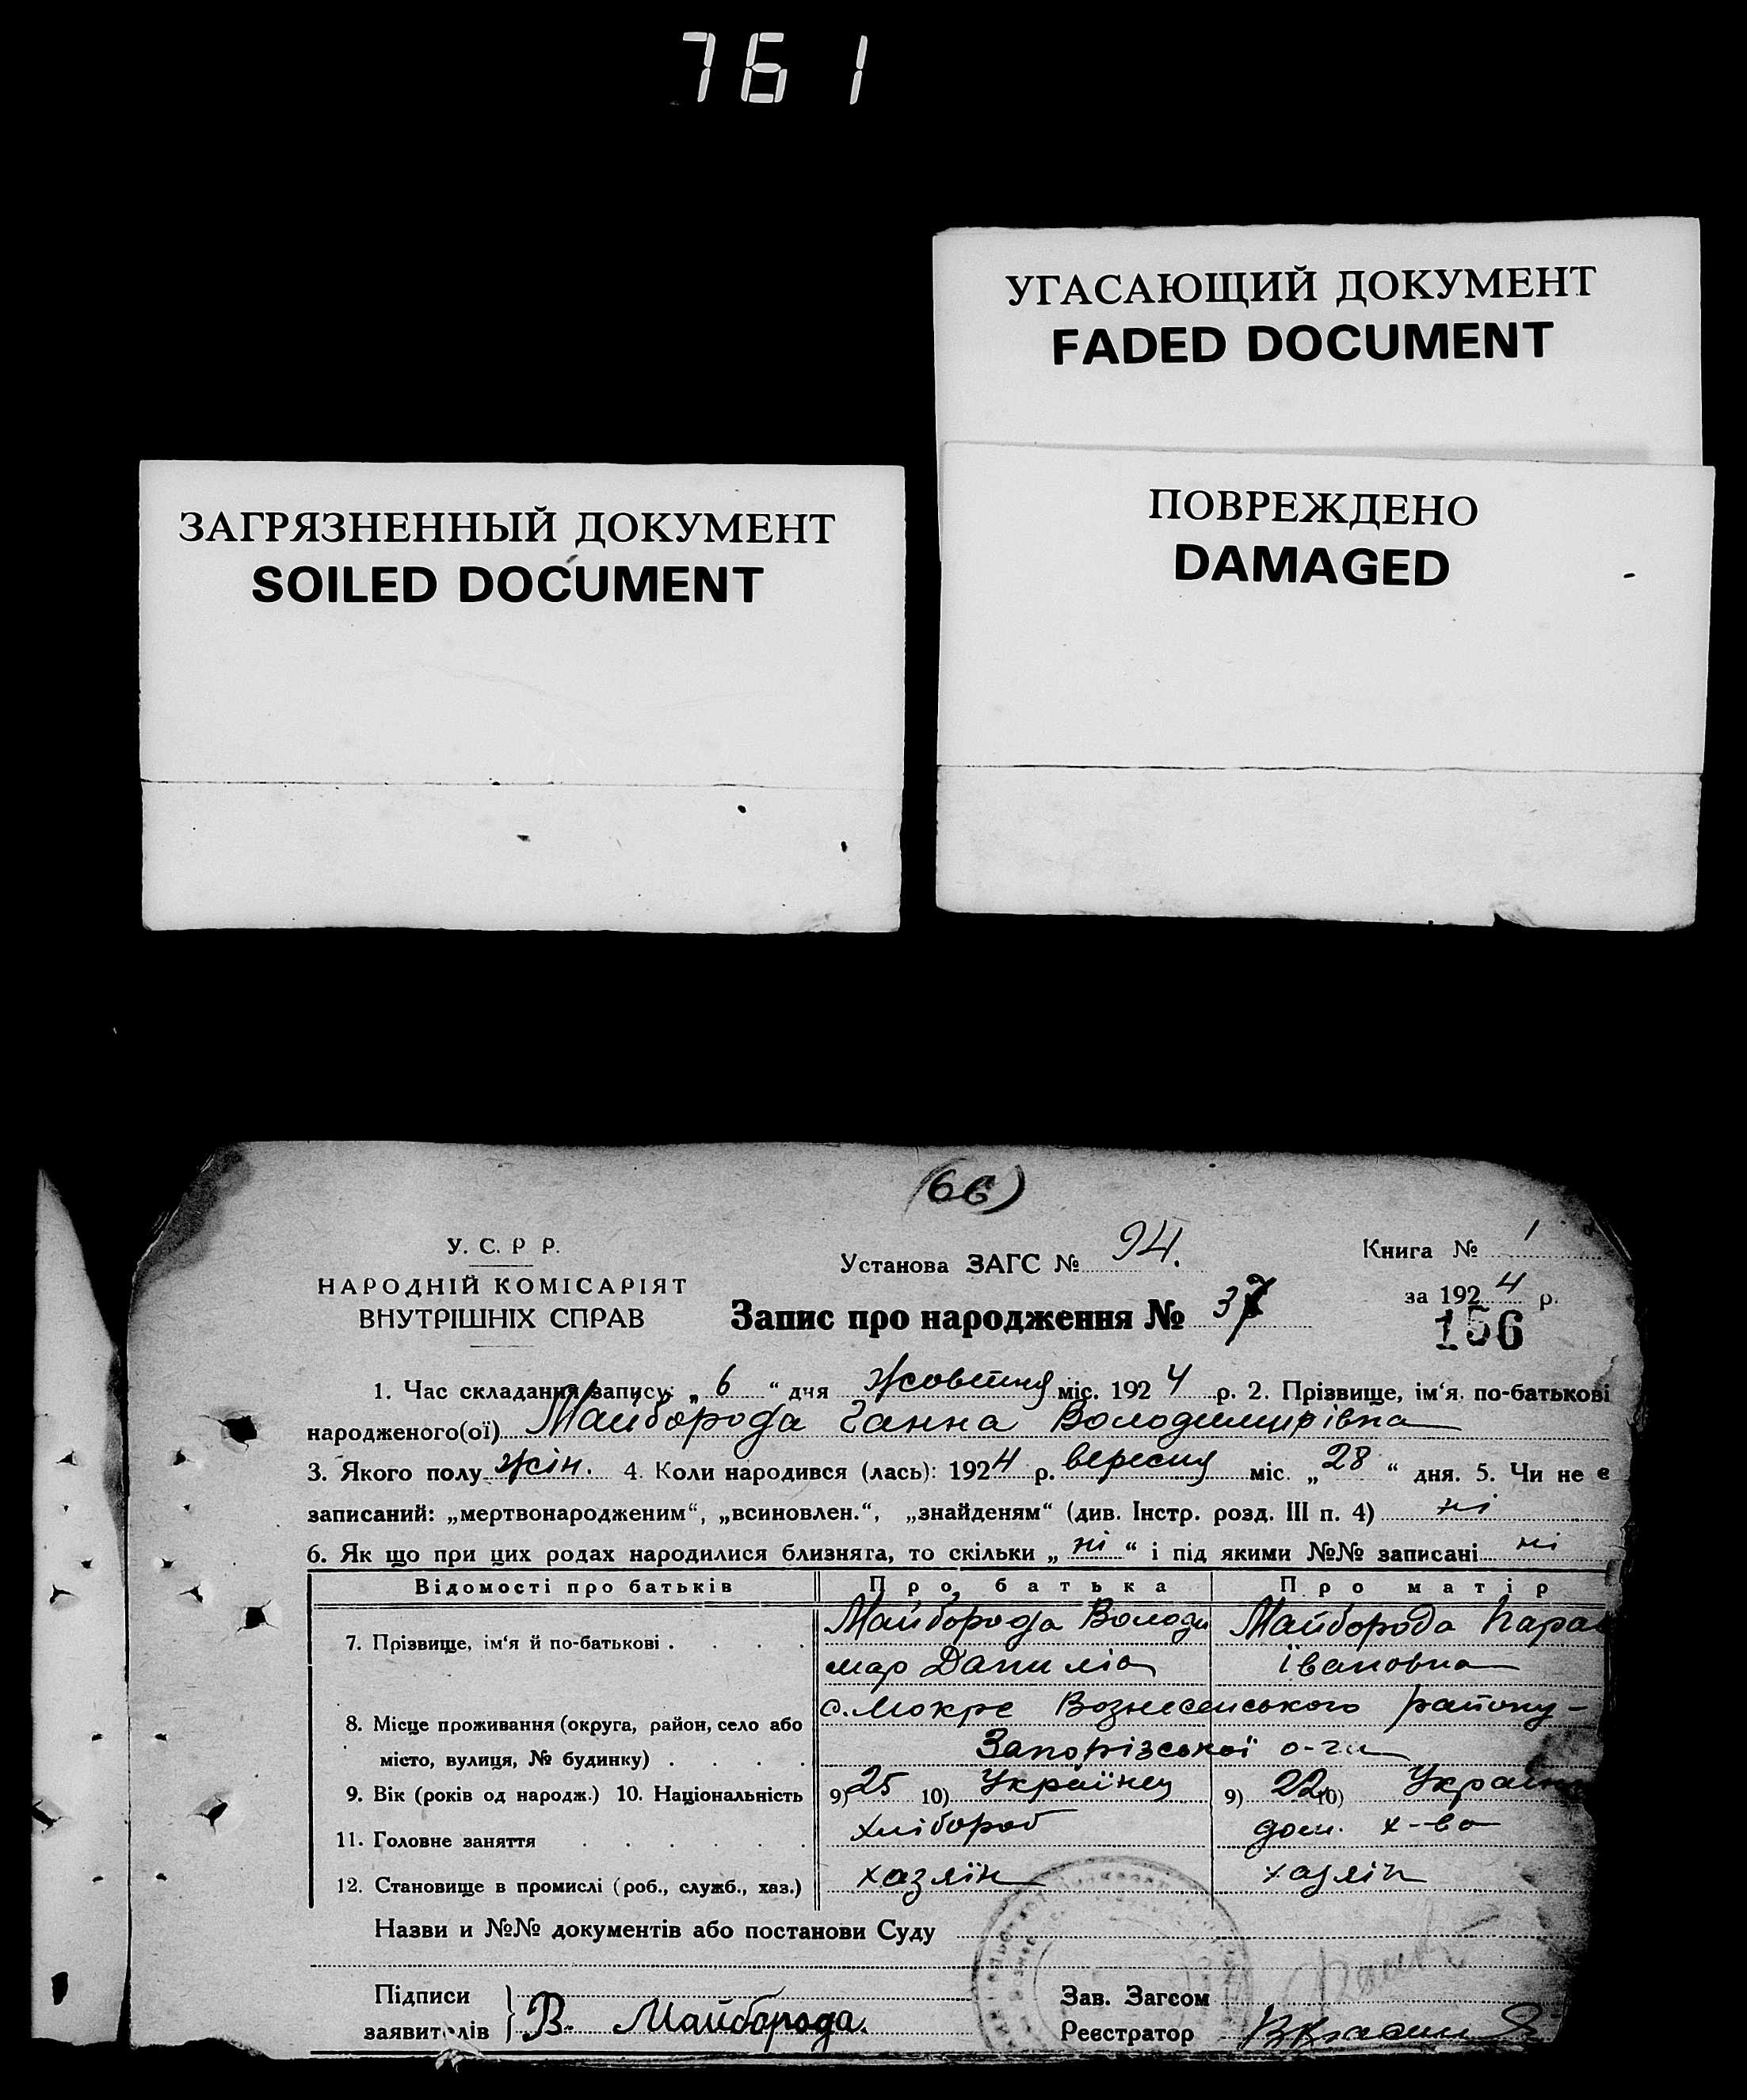 761
УГАСАЮЩИЙ ДОКУМЕНТ
FADED DOCUMENT
ЗАГРЯЗНЕННЫЙ ДОКУМЕНТ
SOILED DOCUMENT
ПОВРЕЖДЕНО
DAMAGED
(66)
У. С. Р Р.
НАРОДНІЙ КОМІСАРІЯТ
ВНУТРІШНІХ СПРАВ
Установа ЗАГС № 94.
Книга № 1
за 1924 р.
Запис про народження № 37
156
1. Час складання запису: „ 6 “ дня жовтня міс. 1924 р. 2. Прізвище, ім'я, по-батькові
народженого(ої) Майборода Ганна Володимирівна
3. Якого полу жін. 4. Коли народився (лась): 1924 р. вересня міс. „ 28 “ дня. 5. Чи не є
записаний: „мертвонародженим“, „всиновлен.“, „знайденям“ (див. Інстр. розд. III п. 4) ні
6. Як що при цих родах народилися близнята, то скільки „ ні “ і під якими №№ записані ні
Відомості про батьків Про батька Про матір
7. Прізвище, ім'я й по-батькові . . . . Майборода Володи Майборода Парас
мир Івановна
8. Місце проживання (округа, район, село або с. Мокре Вознесенського району -
місто, вулиця, № будинку) . . . . Запорізської о-ги
9. Вік (років од народж.) 10. Національність 9) 25 10) Українец 9) 22 10) Україн
11. Головне заняття . . . . . . хлібороб дом. х-во
12. Становище в промислі (роб., служб., хаз.) хазяїн хазяїн
Назви и №№ документів або постанови Суду
Підписи
заявителів } В. Майборода.
Зав. Загсом
Реєстратор